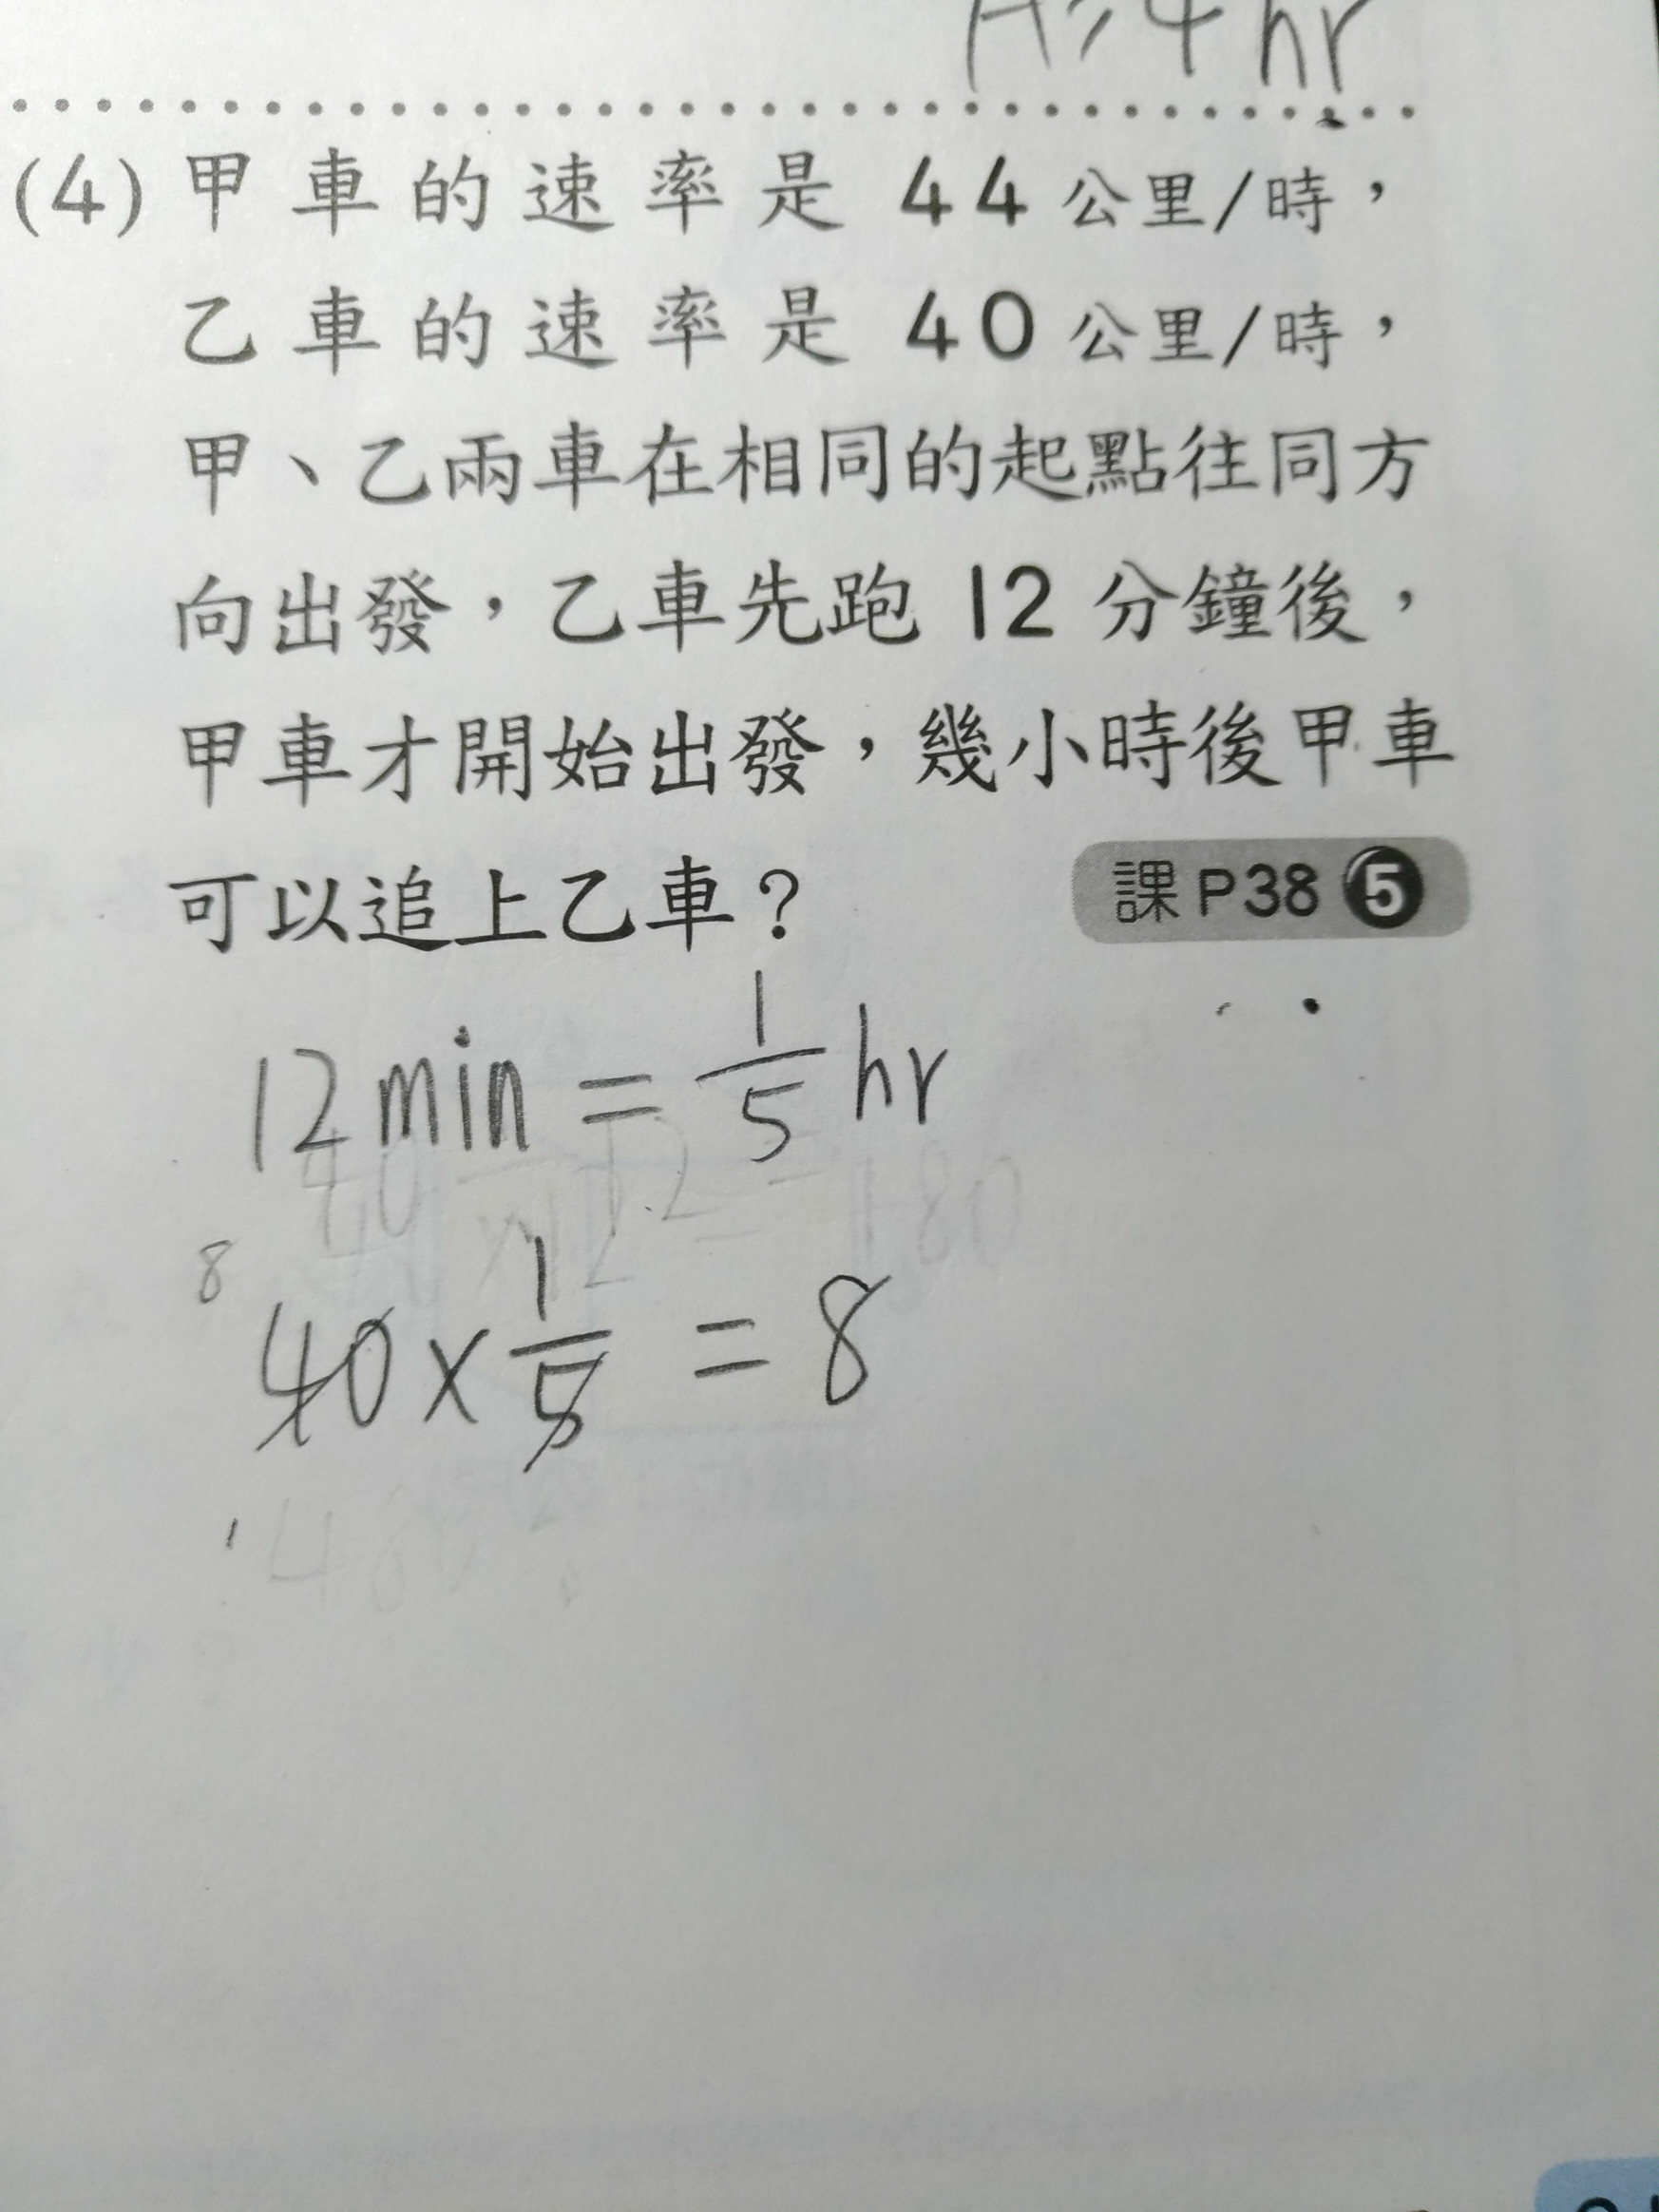 A：4 hr
(4) 甲車的速率是 44 公里/時，
乙車的速率是 40 公里/時，
甲、乙兩車在相同的起點往同方
向出發，乙車先跑 12 分鐘後，
甲車才開始出發，幾小時後甲車
可以追上乙車？ 課 P38 5
12 min = 1/5 hr
8
40 x 1/5 = 8
1